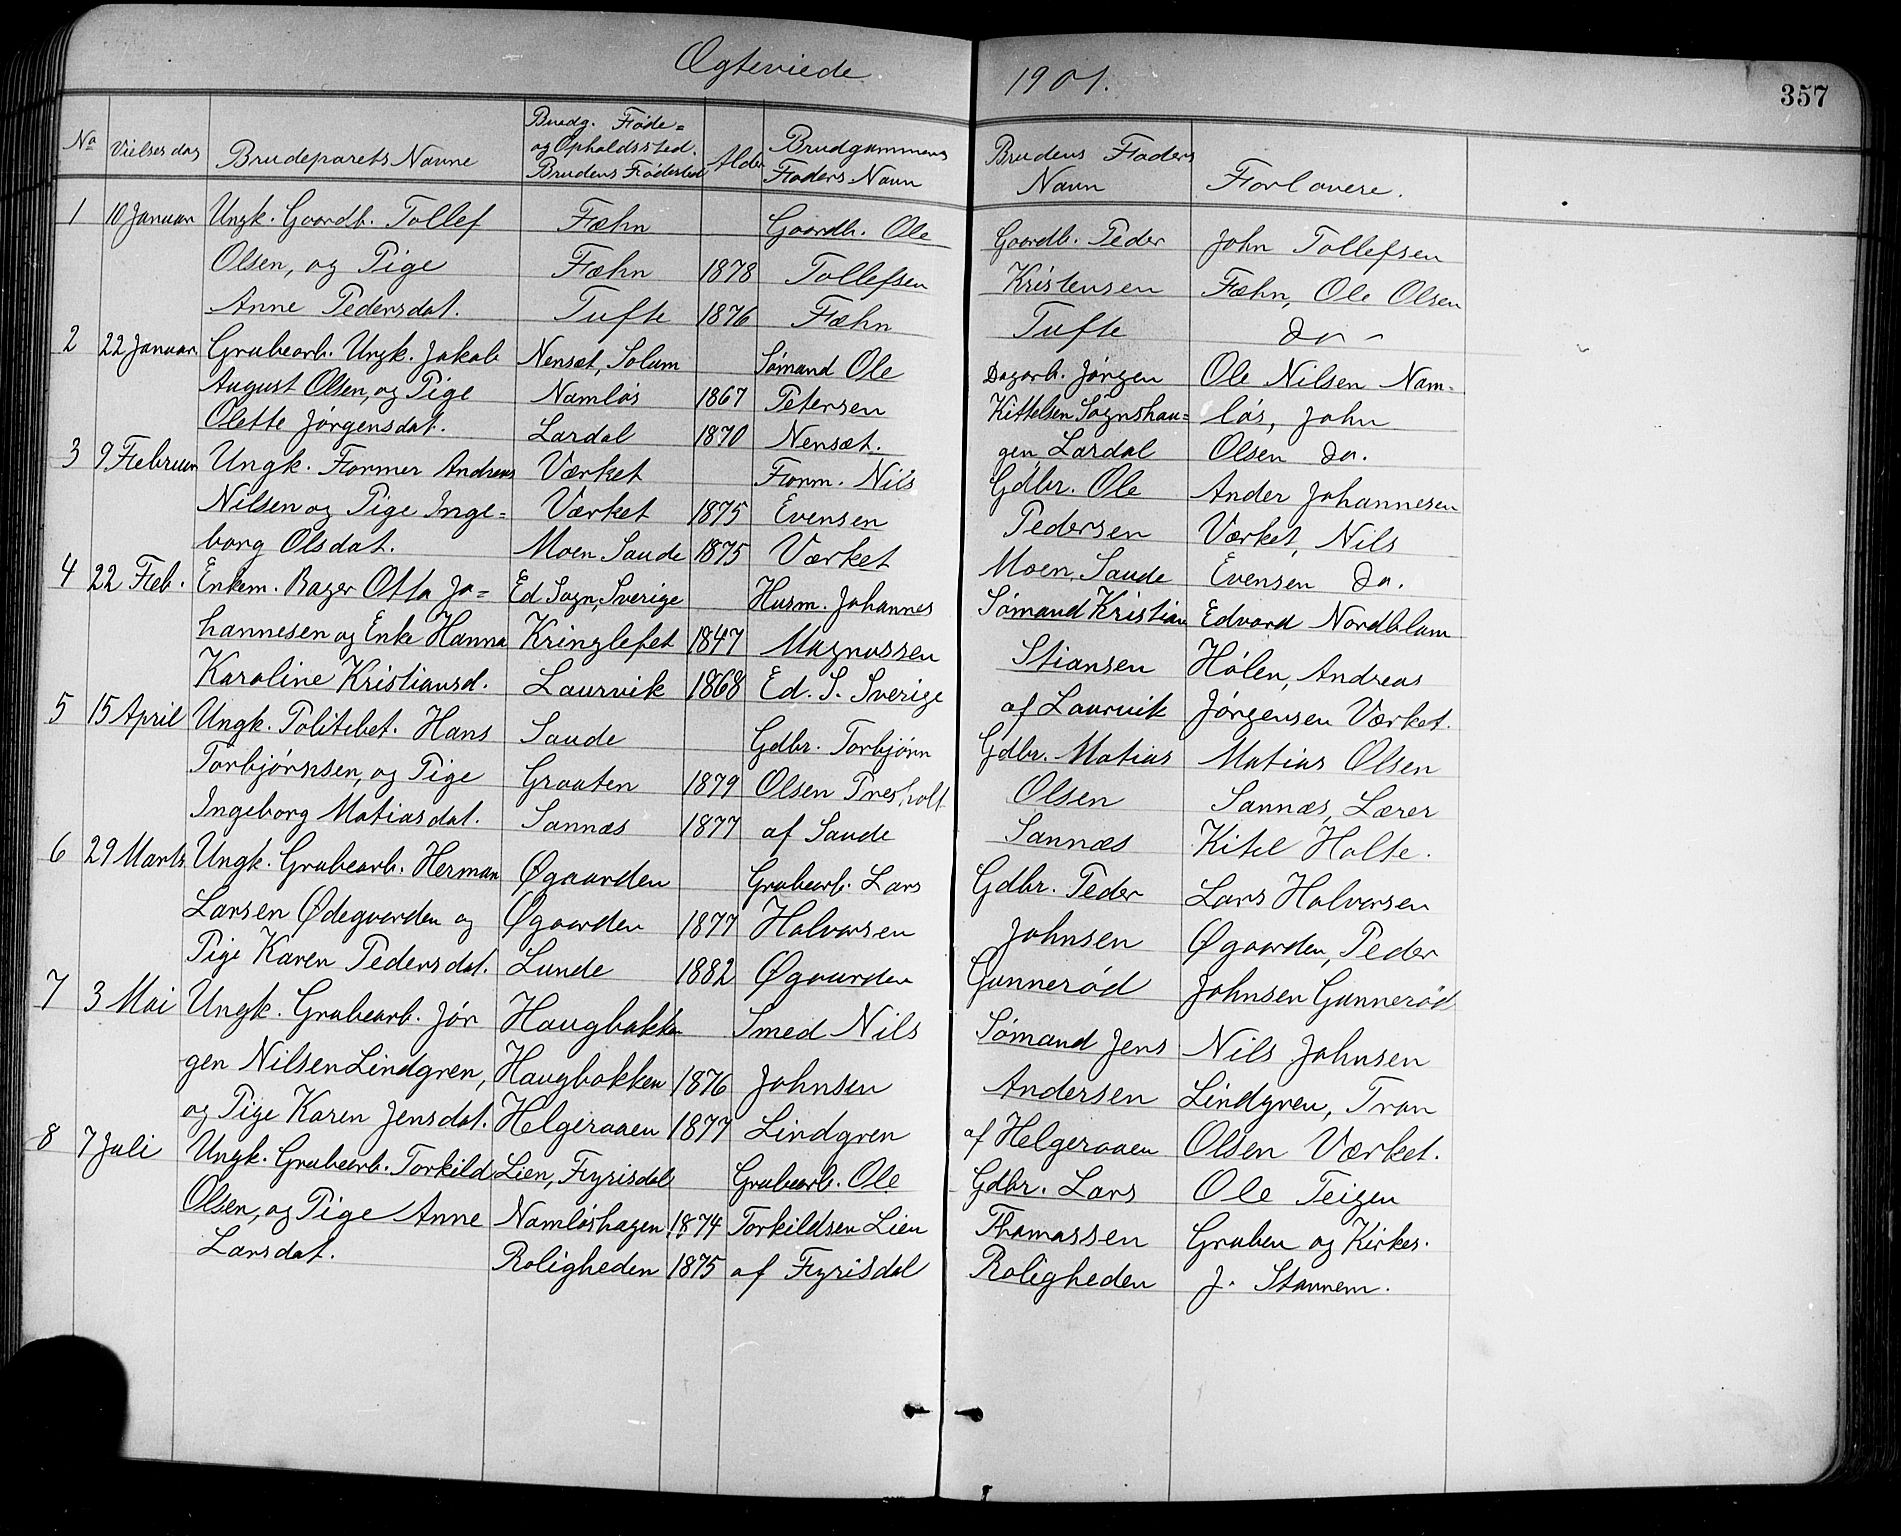 Ægteviede 1901.
357
No Vielses dag Brudeparets Navne Brudg. Føde= og Opholdssted. Brudens Fødested Alder Brudgommens Faders Navn Brudens Faders Navn Forlovere.
1 10 Januar Ungk. Gaardb. Tollef Fæhn Gaardb. Ole Gaardb. Peder John Tollefsen
Olsen, og Pige Fæhn 1878 Tollefsen Kristensen Fæhn, Ole Olsen
Anne Pedersdat. Tufte 1876 Fæhn Tufte do -
2 22 Januar Grubearb. Ungk. Jakob Nensæt, Solum Sømand Ole Dagarb. Jørgen Ole Nilsen Nam=
August Olsen, og Pige Namløs 1867 Petersen Kittelsen Sognshau= løs, John
Olette Jørgensdat. Lardal 1870 Nensæt. gen Lardal Olsen do.
3 9 Februar Ungk. Former Andreas Værket Form. Nils Gdbr. Ole Ander Johannesen
Nilsen og Pige Inge= Værket 1875 Evensen Pedersen Værket, Nils
borg Olsdat. Moen Saude 1875 Værket Moen, Saude Evensen do.
4 22 Feb. Enkem. Bager Otto Jo= Ed Sogn, Sverige Husm. Johannes Sømand Kristian Edvard Nordblam
hannesen og Enke Hanna Kringlefet 1847 Magnussen Stiansen Hølen, Andreas
Karoline Kristiansd. Laurvik 1868 Ed. S. Sverige af Laurvik Jørgensen Værket.
5 15 April Ungk. Politibet. Hans Saude Gdbr. Torbjørn Gdbr. Matias Matias Olsen
Torbjørnsen, og Pige Graaten 1879 Olsen Presholt Olsen Sannæs, Lærer
Ingeborg Matiasdat. Sannæs 1877 af Saude Sannæs Kitel Holte.
6 29 Marts Ungk. Grubearb. Herman Øgaarden Grubearb. Lars Gdbr. Peder Lars Halvorsen
Larsen Ødegaarden og Øgaarden 1877 Halvorsen Johnsen Øgaarden, Peder
Pige Karen Pedersdat. Lunde 1882 Øgaarden Gunnerød Johnsen Gunnerød
7 3 Mai Ungk. Grubearb. Jør Haugbakken Smed Nils Sømand Jens Nils Johnsen
gen Nilsen Lindgren, Haugbakken 1876 Johnsen Andersen Lindgren, Tron
og Pige Karen Jensdat. Helgeraaen 1877 Lindgren af Helgeraaen Olsen Værket.
8 7 Juli Ungk. Grubearb. Torkild Lien, Fyrisdal Grubearb. Ole Gdbr. Lars Ole Teigen
Olsen, og Pige Anne Namløshagen 1874 Torkildsen Lien Thomassen Gruben og Kirkes.
Larsdat. Roligheden 1875 af Fyrisdal Roligheden J. Stannem.